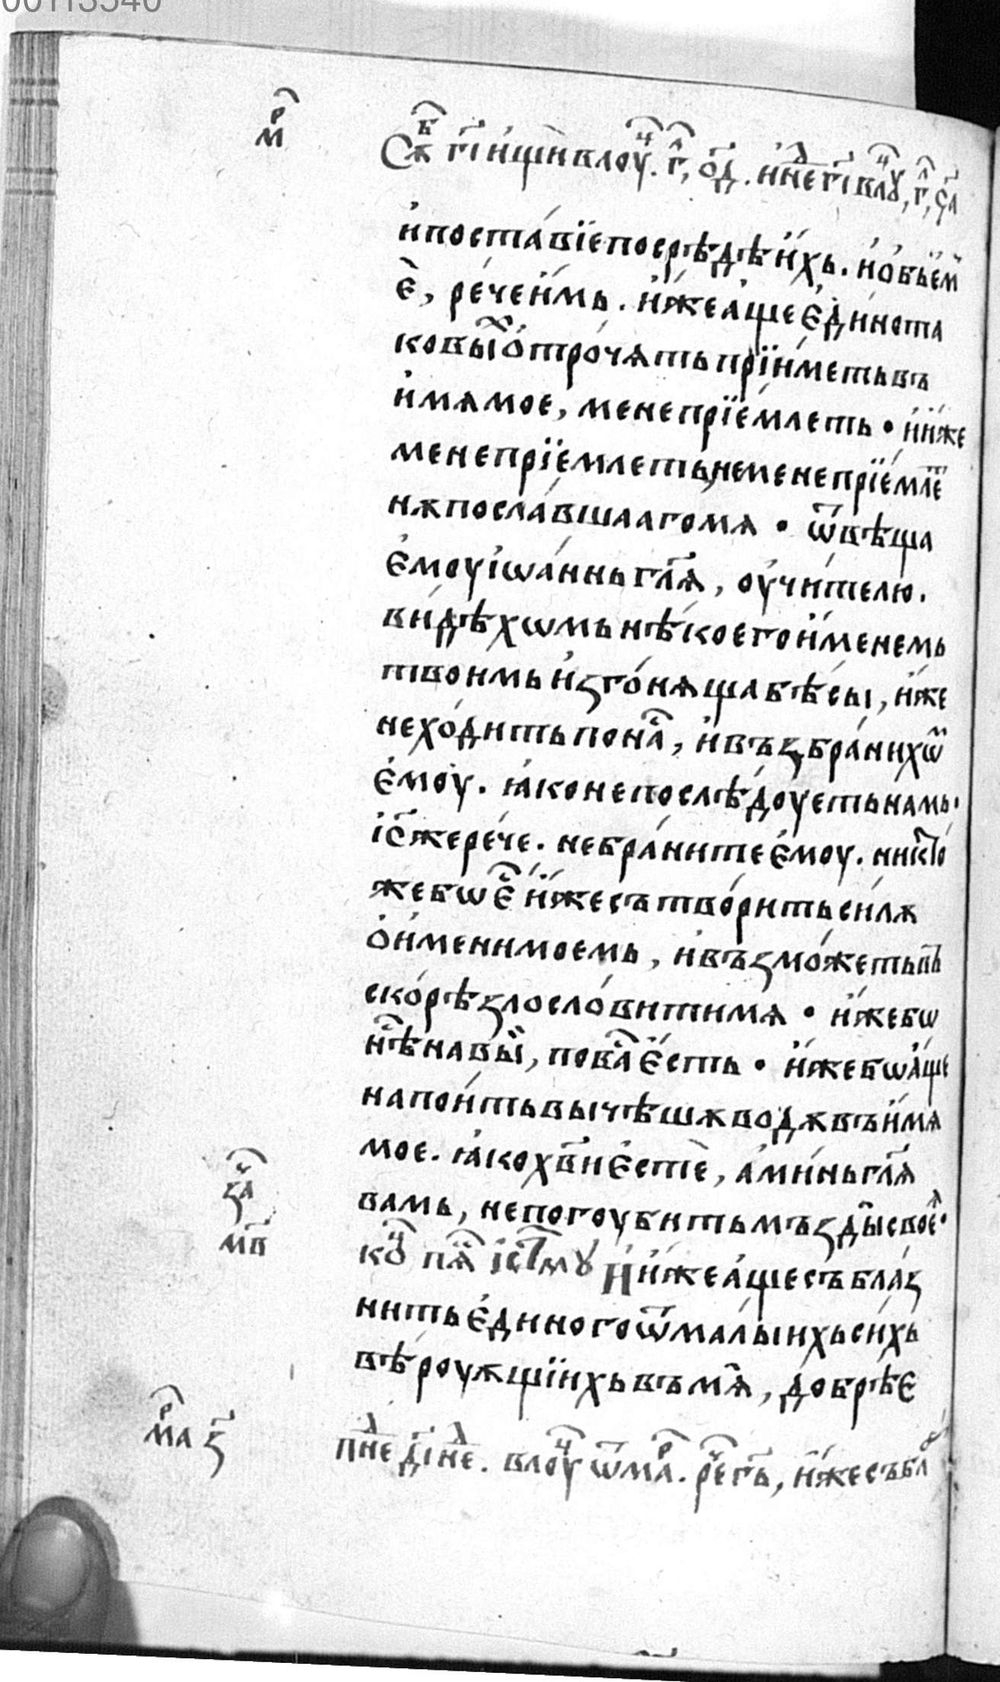 00113540
мⷬ҇
Сѫⷠ҇ г҃і ищи въ лоуⷱ҇. гⷧ҇, о҃д. и нⷣе г҃і в лоуⷱ҇, гⷧ҇, с҃а
и҆поста́вїепосрѣдѣи҆́хь. и҆о҆бье́мⸯ
є҆̀, ре́чеи҆́мь. и҆́жеа҆́щеє҆ди́нота
ковы́ⷯо҆трочѧтьпрїи́метьвъ
и҆мѧмое, менепрїе́млеть • и҆и҆́же
менепрїе́млеть, немене прїе́млеⷮ
нѫпосла́вшаагомѧ • ѿвѣща
є҆моуі҆ѡа́нньгл҃ѧ, оу҆чителю.
ви́дѣхѡмьнѣ́коегои҆́менемь
твоимьи҆зго́нѧщабѣсы, и҆́же
нехо́дитьпонаⷭ҇, и҆възбра́нихѡⷨ
є҆моу́. ꙗ҆конепослѣ́доуетьнамь.
і҆с҃жере́че. небра́нитеє҆моу́. никто́
жебѡє҆ⷭ҇и҆́жесътво́ритьси́лѫ
о҆и́менимоемь, и҆възмо́жетьпⸯ
ско́рѣзлосло́витимѧ • и҆́жебѡ
нⷭ҇ѣнавы̀, поваⷭ҇є҆́сть • и҆́жебѡа҆́ще
напои́тьвычѣшѫводѫвъи҆́мѧ
мое. ꙗ҆кохв҃иє҆стѐ, а҆ми́ньгл҃ѧ
вамь, непогоуби́тьмъздысвоеѧ҆.
коⷰ҇ пѧⷦ҇ і҆с҃тⷨоу И҆и҆́жеа҆́щесъблаз
нитьє҆ди́ногоѿма́лыихьси́хь
вѣроуѫщїихьвъмѧ̀, до́брѣє
заⷱ҇
мв҃
мⷬ҇а з҃
пⷩ҇е д҃і нⷣе. в лоуⷱ҇ ѿ мⷬ҇а. реⷱ҇ г҃ь, и҆́жесъблⷶ